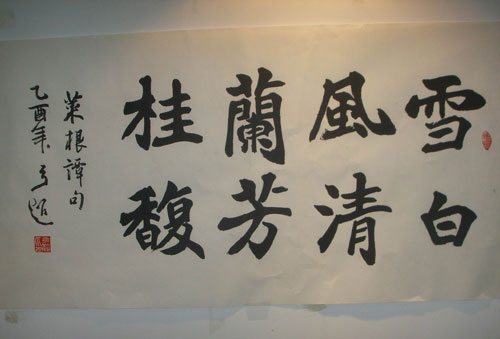 雪白
風清
蘭芳
桂馥
菜根譚句
乙酉年